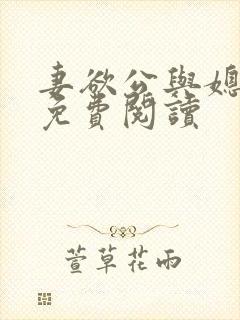 妻欲公與媳
免費閱讀
萱草花雨